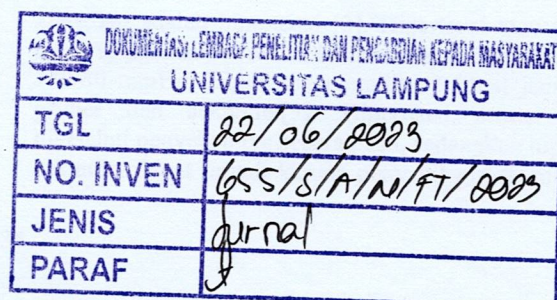 DOKUMENTASI LEMBAGA PENELITIAN DAN PENGABDIAN KEPADA MASYARAKAT
UNIVERSITAS LAMPUNG
TGL 22/06/2023
NO. INVEN 655/S/A/N/FT/2023
JENIS Jurnal
PARAF